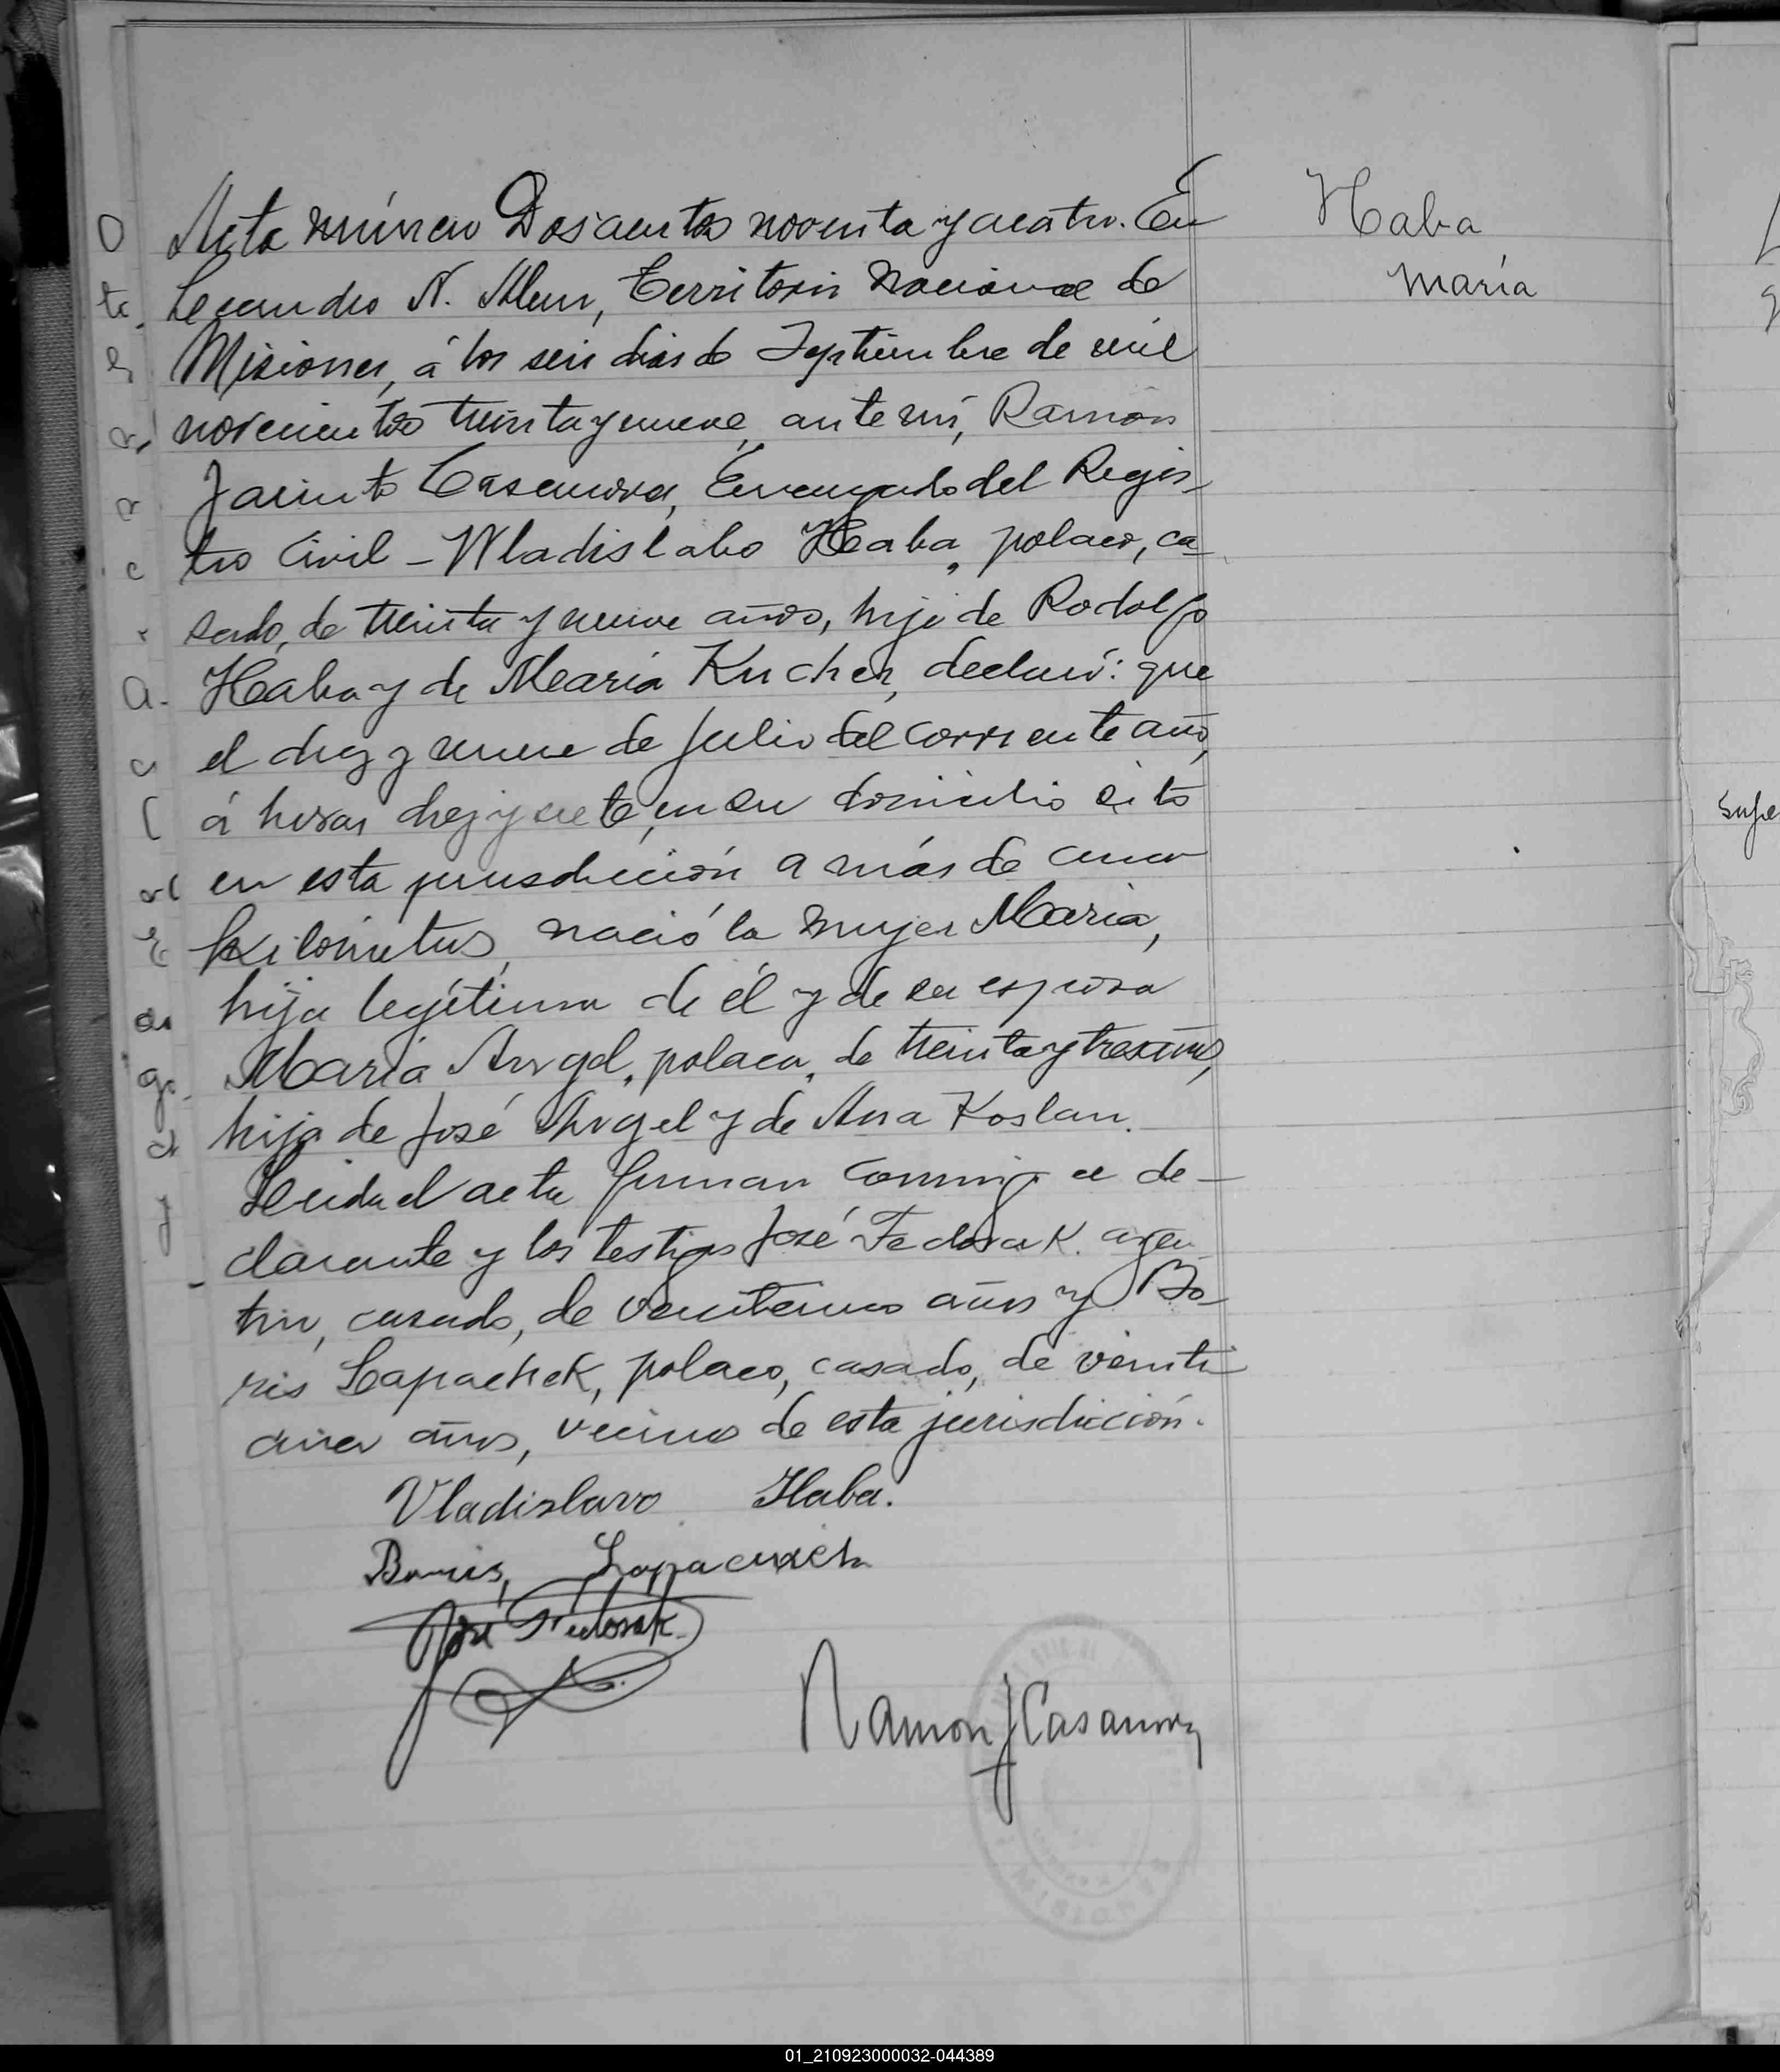 Acta número Doscientos noventa y cuatro. En
Leandro N. Alem, Territorio Nacional de
Misiones, á los seis dias de Septiembre de mil
novecientos treinta y nueve, ante mí, Ramón
Jacinto Casanova, Encargado del Regis-
tro Civil - Wladislabo Haba, polaco, ca-
sado, de treinta y nueve años, hijo de Rodolfo
Haba y de María Kucher, declaró: que
el diez y nueve de Julio del corriente año,
á horas diez y siete, en su domicilio sito
en esta jurisdicción a más de cinco
kilómetros, nació la mujer María,
hija legítima de él y de su esposa
María Angel, polaca, de treinta y tres años,
hija de José Angel y de Ana Koslan.
Leida el acta firman conmigo el de-
clarante y los testigos José Fedorak, argen-
tino, casado, de años y Bo-
ris Lapachek, polaco, casado, de veinti
cinco años, vecinos de esta jurisdicción.
Vladislavo Haba.
Boris
José Fedorak
Ramon J Casanova
Haba
María
MISIONES
01_210923000032-044389